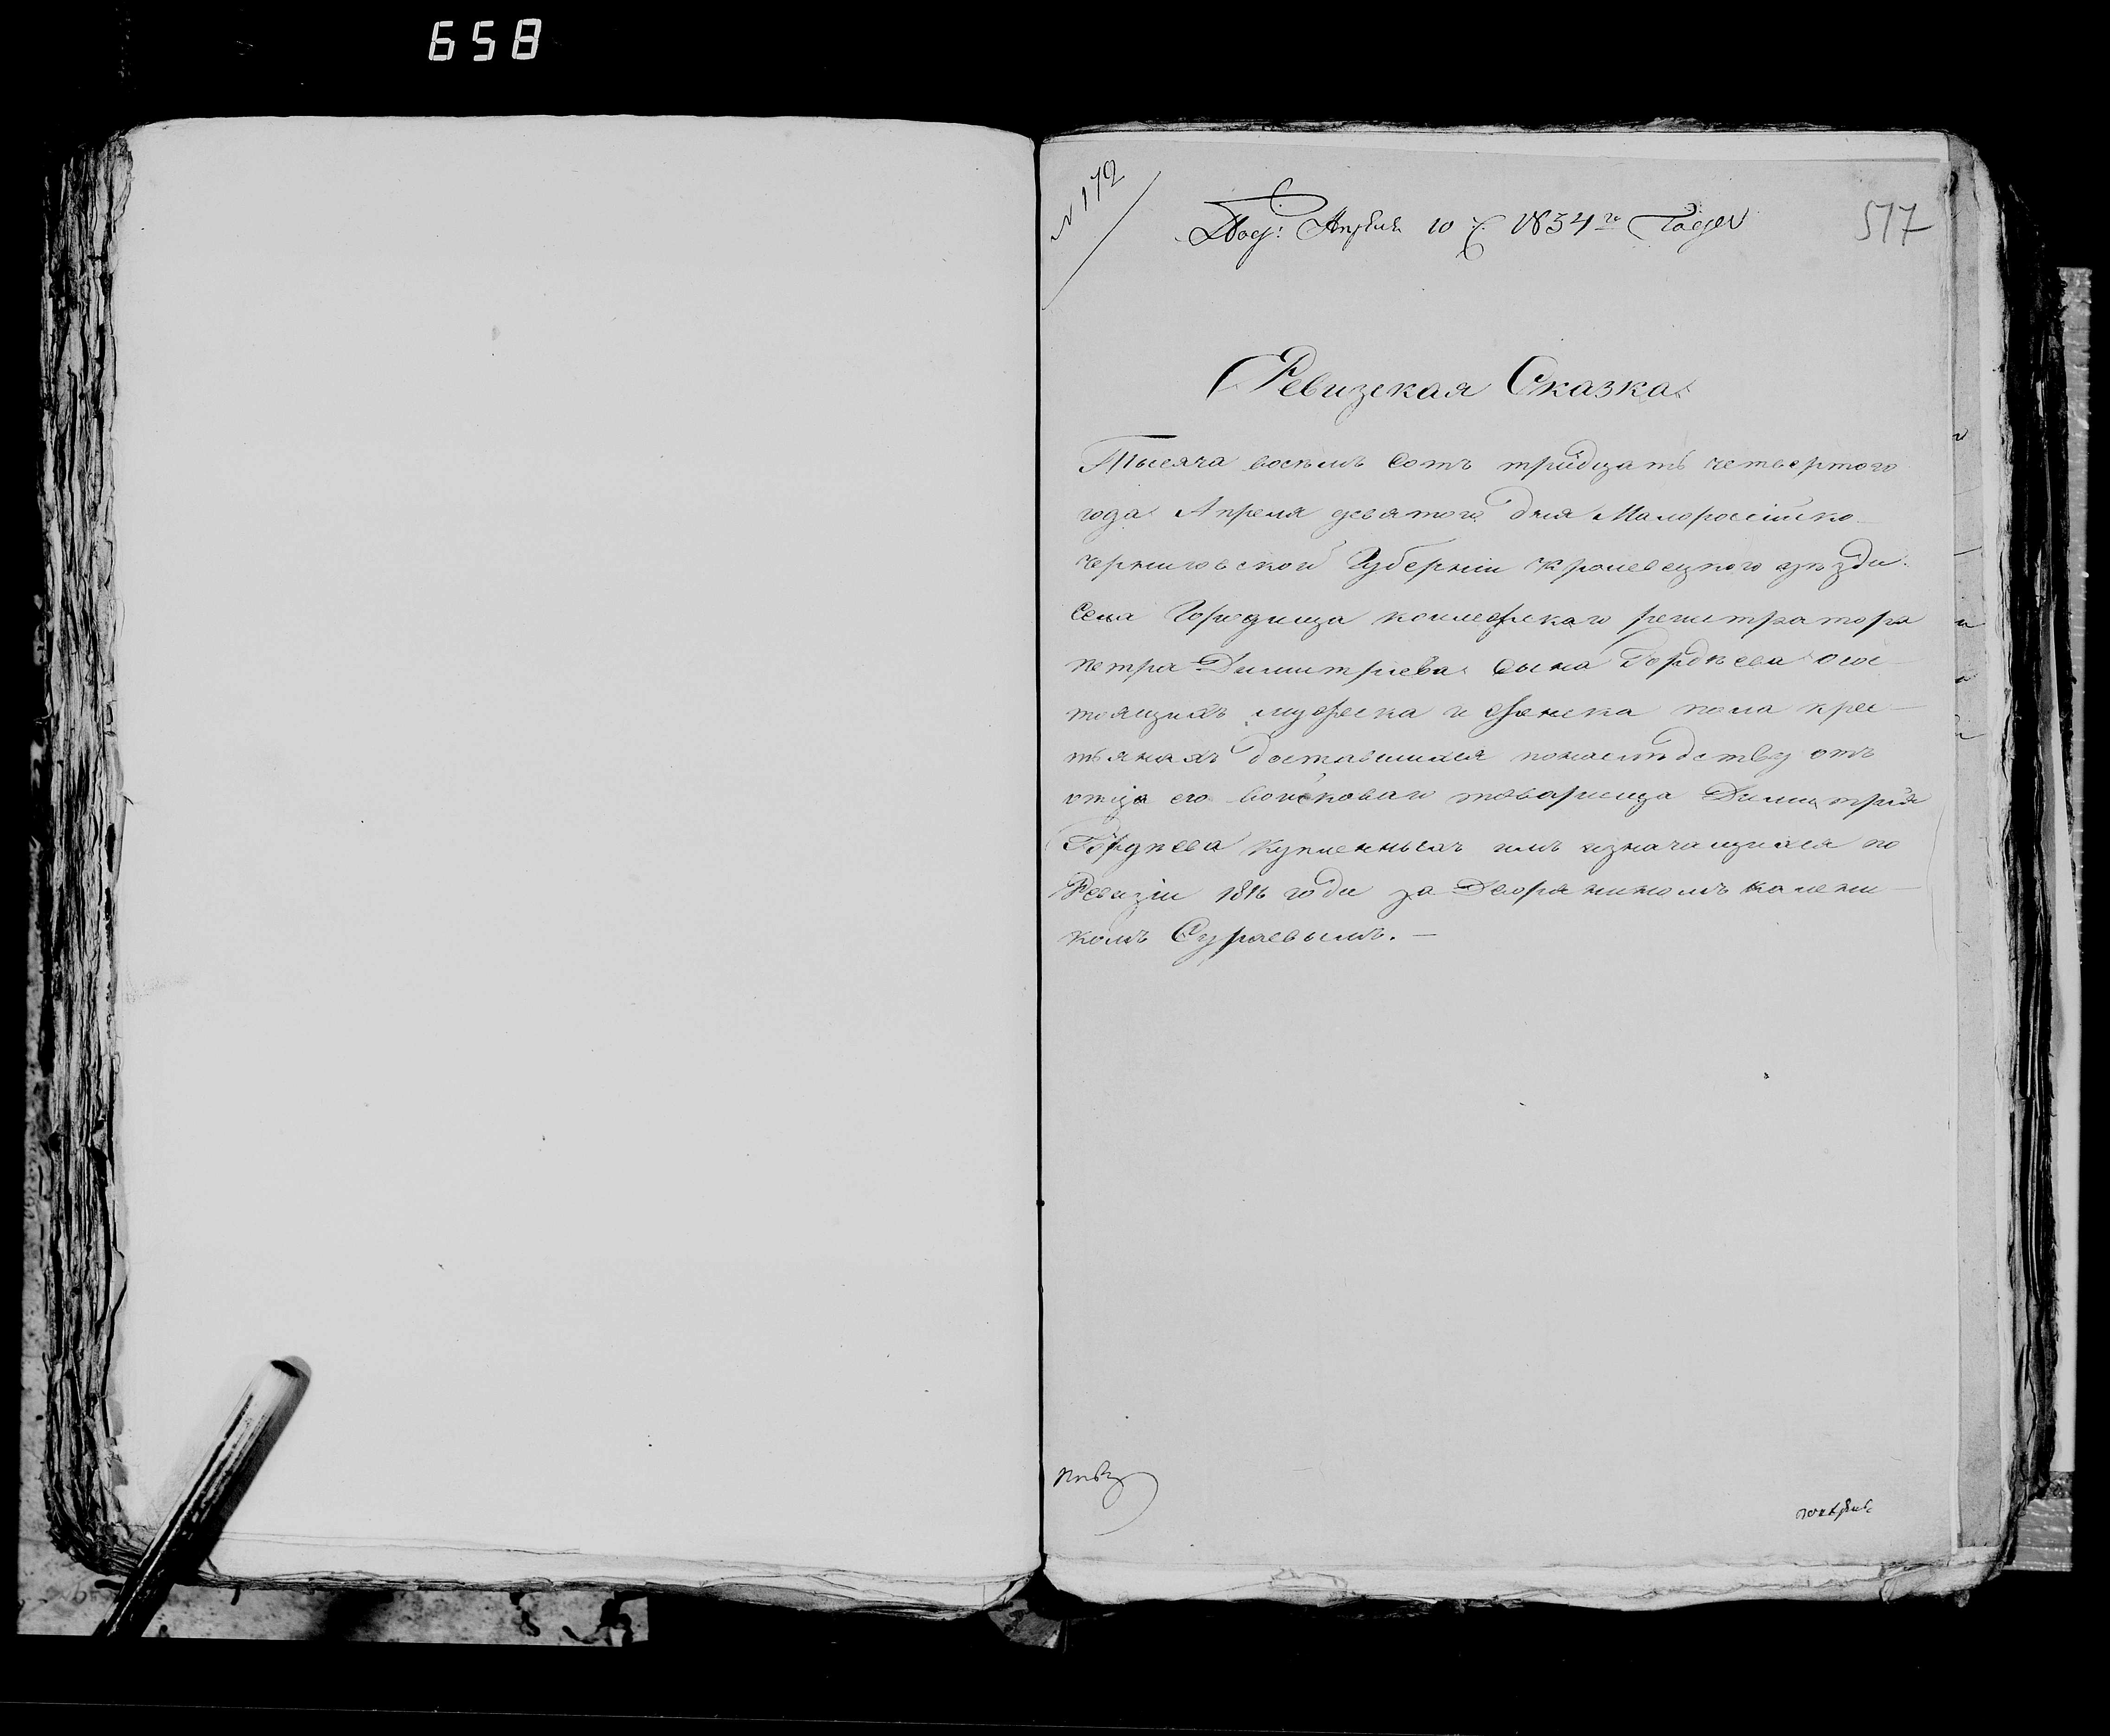 658
N 172
Под: Апреля 10 д. 1834го Года
517
Ревизская Сказка
Тысяча восемь Сотъ тридцать четвертого
года Апреля девятого дня Малоросійско
черниговской Губерніи Кролевецкого уезда
Села Городища колежскаго регистратора
петра Димитріева сына Гордѣева осос
тоящихъ мужеска и женска пола крес
тьянахъ доставшихся понаследству отъ
отца его войсковаго товарища Димитрія
Гордѣева купленныхъ имъ изначащихся по
Ревизіи 1816 года за Дворяниномъ калени
комъ Сураевымъ. —